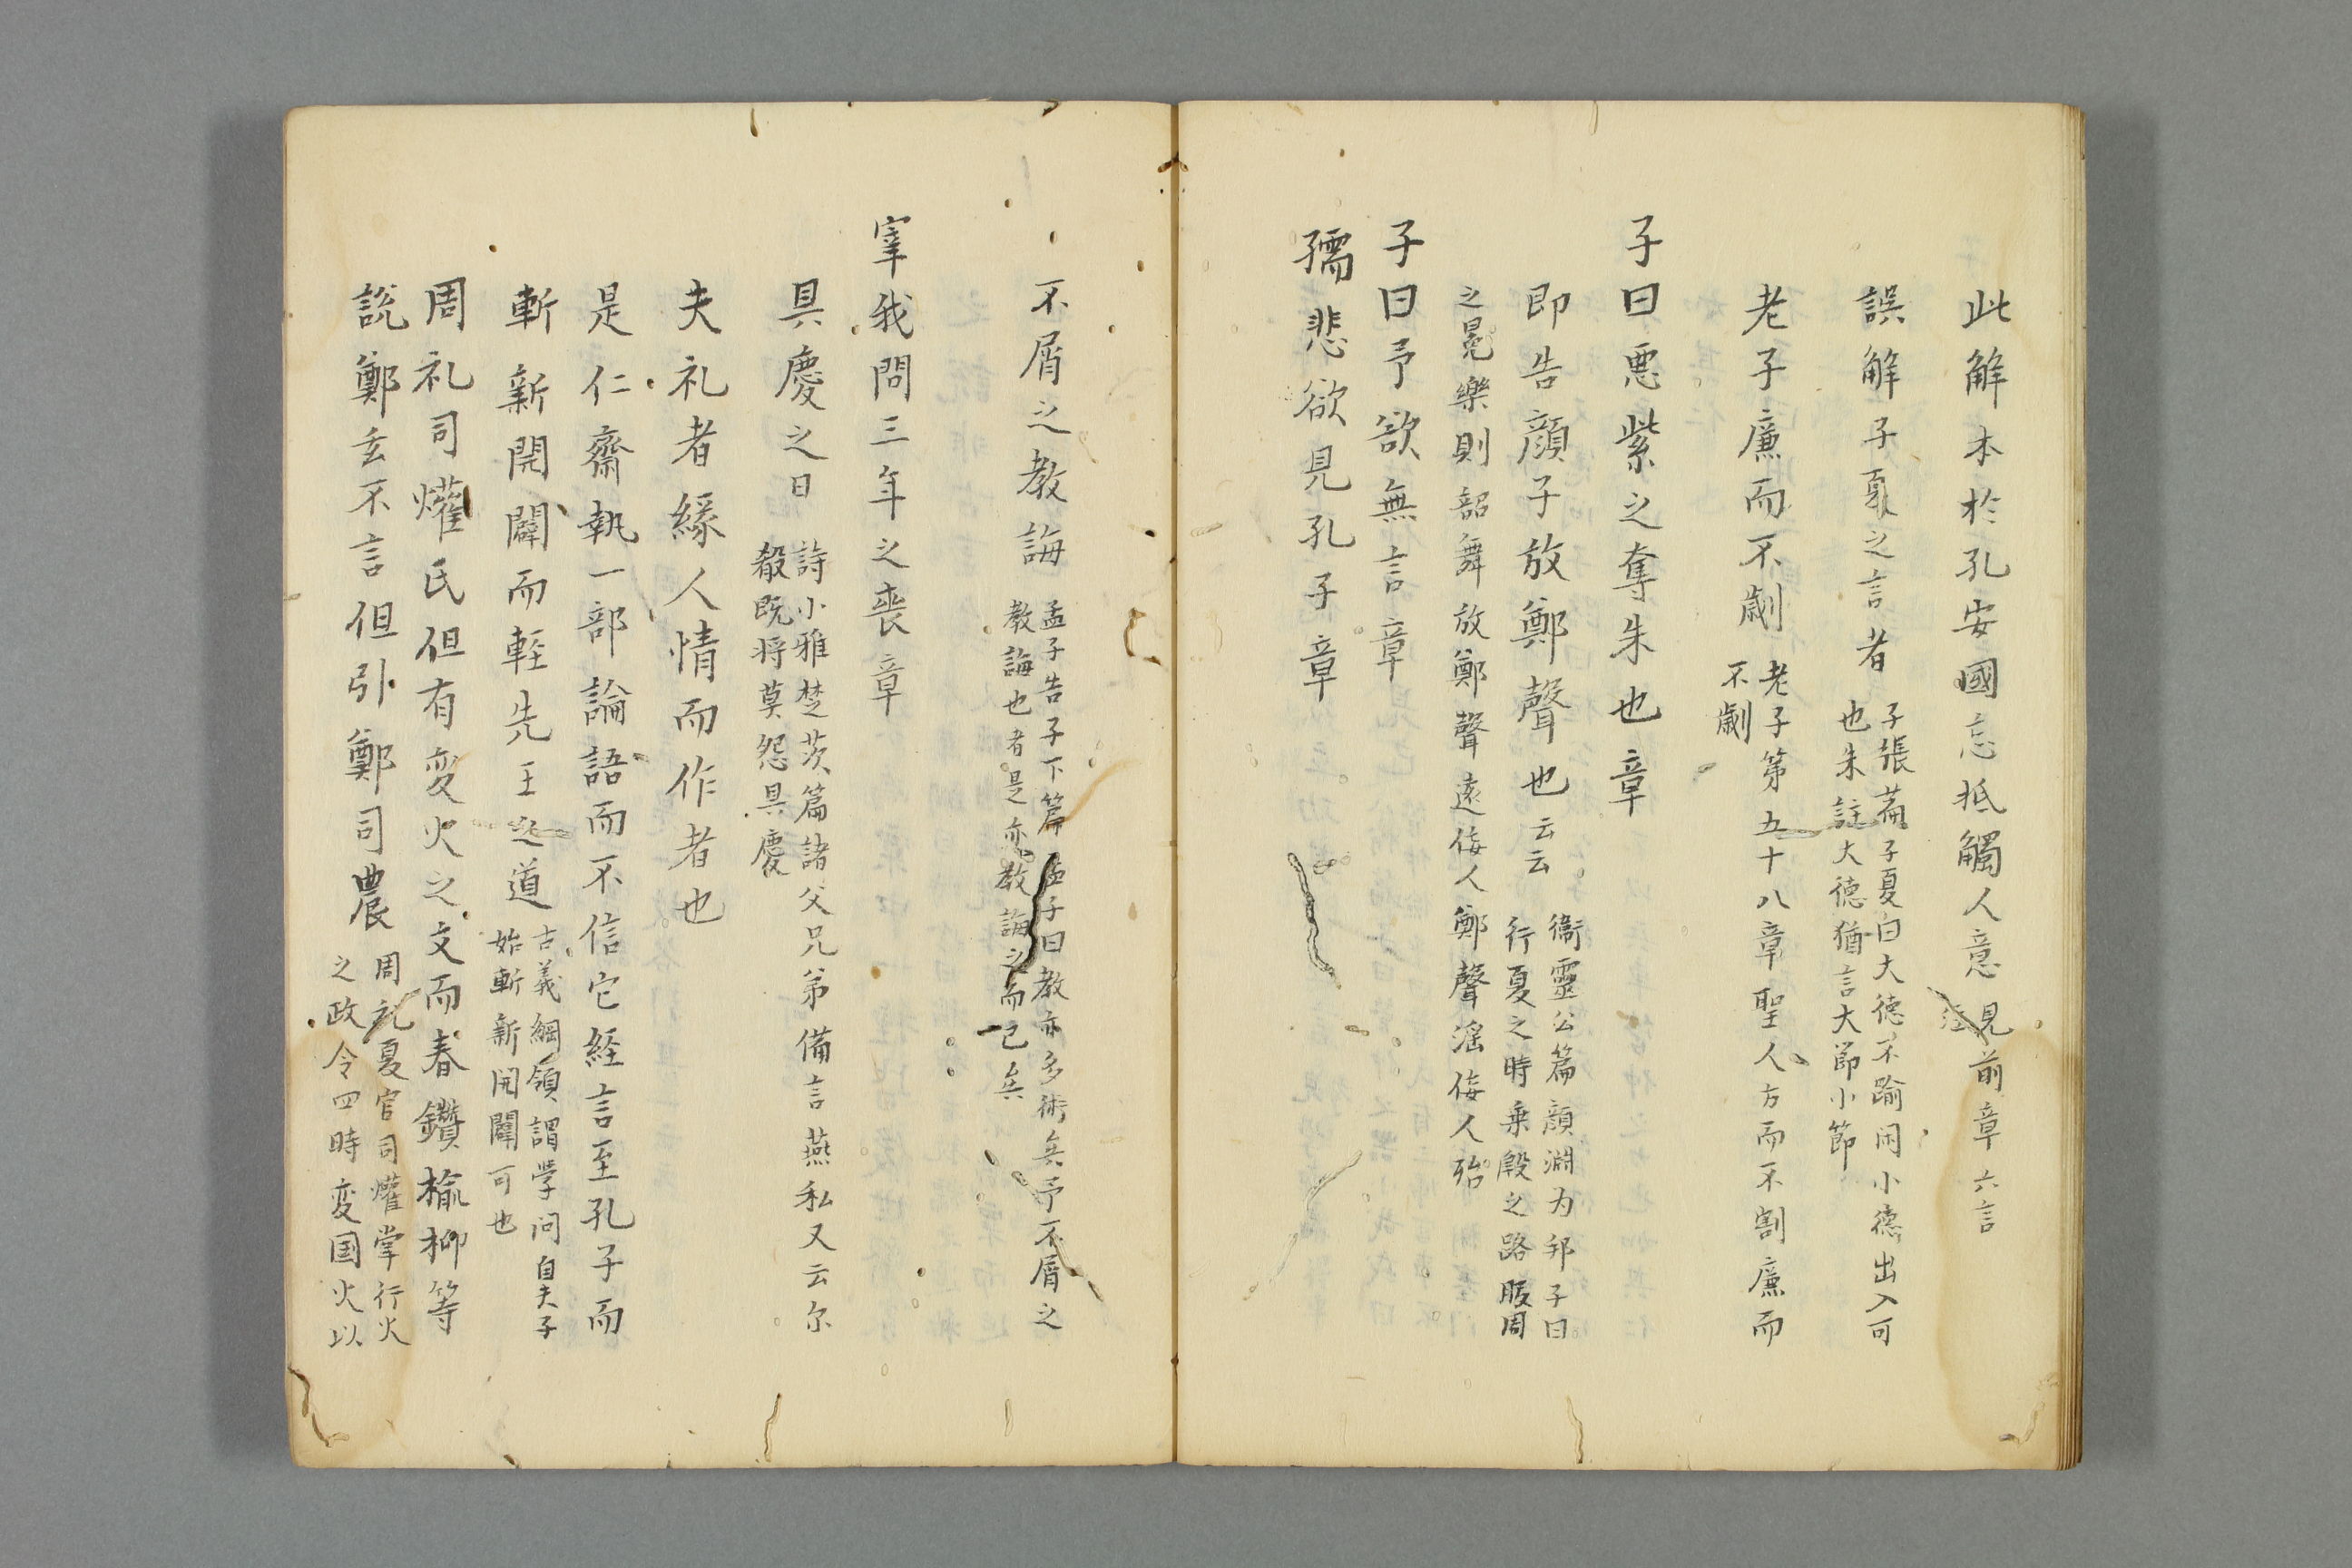 此解本於孔安國忘抵觸人意見前章六言
注
誤解子夏之言者子張萹子夏曰大徳不踰闲小徳出入可
也朱註大徳猶言大節小節
老子廉而不劌老子第五十八章聖人方而不割廉而
不劌
子曰悪紫之奪朱也章
即告顔子放鄭聲也云云衞靈公篇顔淵为邦子曰
行夏之時乗殷之路服周
之冕樂則韶舞放鄭聲遠佞人鄭聲滛佞人殆
子曰予欲無言章
孺悲欲見孔子章
不屑之教誨孟子告子下篇孟子曰教亦多術矣予不屑之
教誨也者是亦教誨之而已矣
宰我問三年之喪章
具慶之日詩小雅楚茨篇諸父兄弟備言燕私又云尓
殽既将莫怨具慶
夫礼者緣人情而作者也
是仁齋執一部論語而不信它経言至孔子而
斬新開闢而輕先王之道古義綱領謂学问自夫子
始斬新開闢可也
周礼司爟氏但有変火之文而春鑽榆柳等
説鄭玄不言但引鄭司農周礼夏官司爟掌行火
之政令四時変国火以